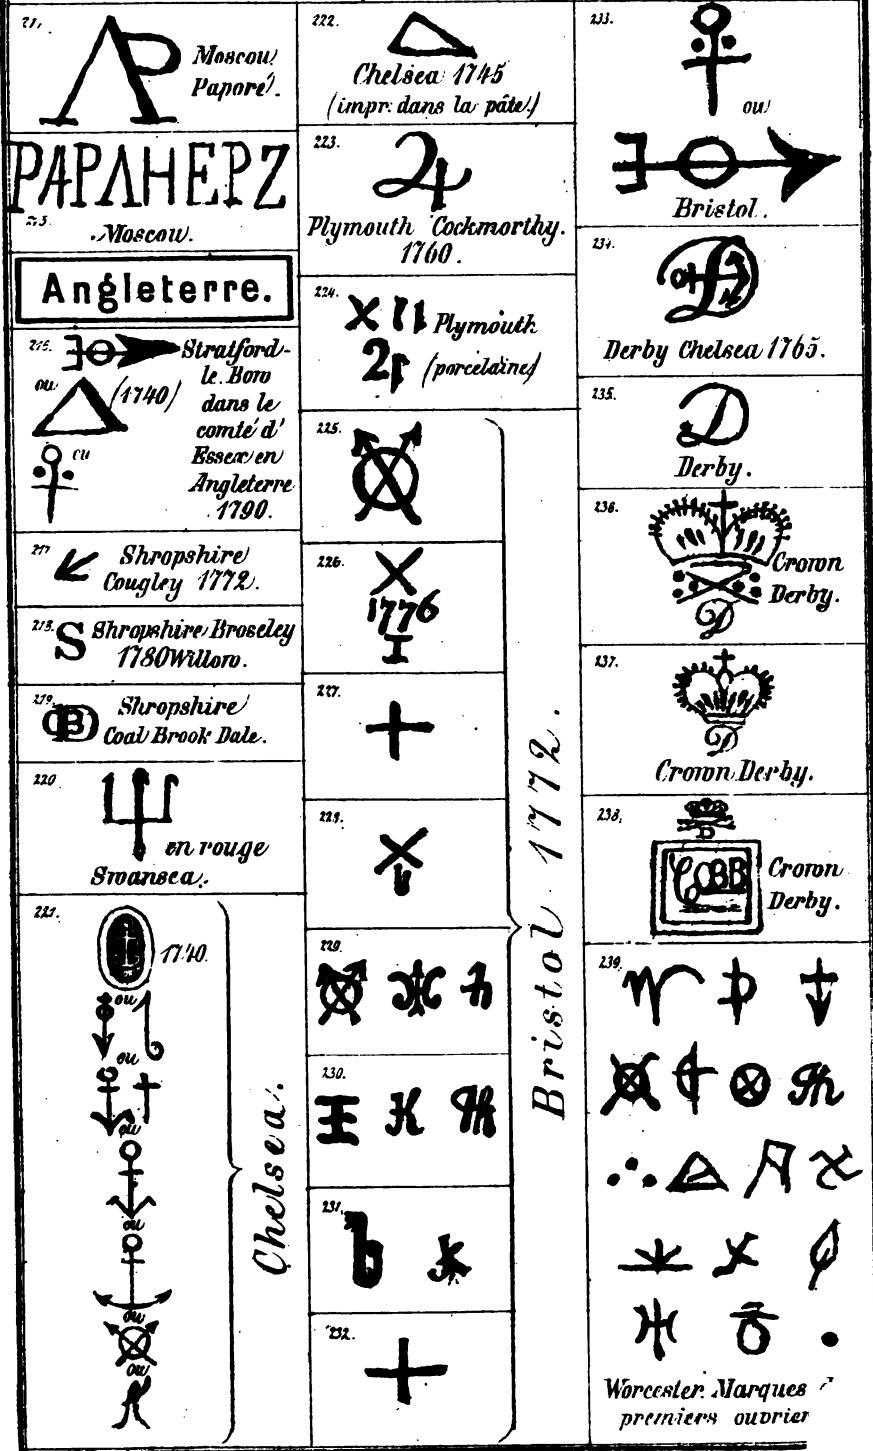 AP
Moscou
Paporé.
PAPΛHEPZ
Moscow.
Angleterre.
Stratford-
ou (1740) le Bow
dans le
comté d'
ou Essex en
Angleterre
1790.
217
Shropshire
Cougley 1772.
S Shropshire Broseley
1780 Willow.
219.
Shropshire
Coal Brook Dale.
220
en rouge
Swansea.
221.
1740.
ou
ou
ou
ou
ou
ou
Chelsea.
222.
Chelsea 1745
(impr. dans la pâte.)
223.
Plymouth Cockmorthy.
1760.
224.
Plymouth
(porcelaine)
225.
226.
1776
I
227.
229.
230.
231.
232.
Bristol 1772.
233.
ou
Bristol.
234.
Derby Chelsea 1765.
235.
D
Derby.
236.
Crown
Derby.
D
237.
D
Crown Derby.
238.
D
Crown
Derby.
239.
Worcester. Marques
premiers ouvrier